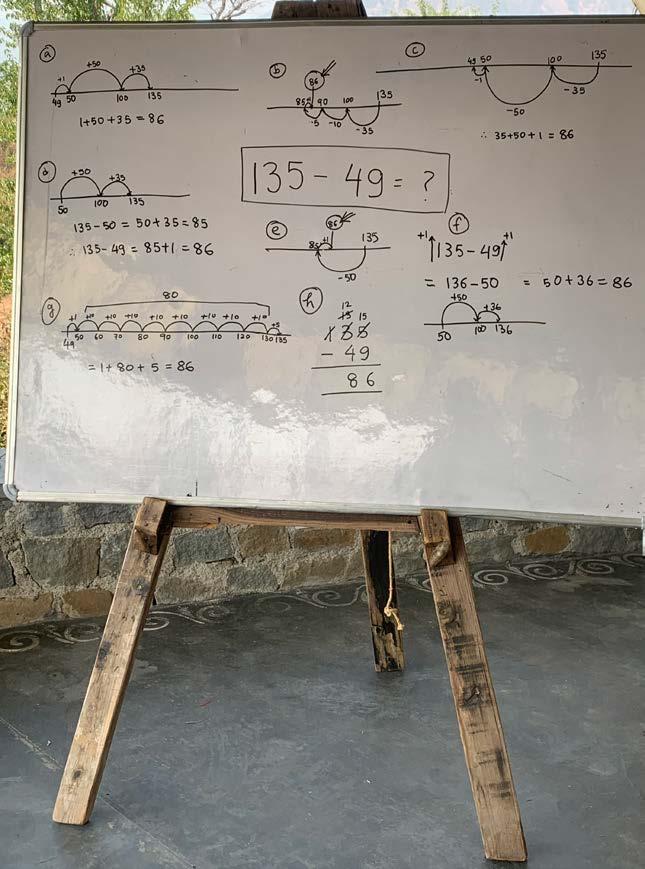 (a)
+1 +50 +35
49 50 100 135
1+50+35 = 86
(b)
86
85 90 100 135
-5 -10 -35
(c)
49 50 100 135
-1 -50 -35
∴ 35+50+1 = 86
135 - 49 = ?
(d)
+50 +35
50 100 135
135-50 = 50+35 = 85
∴ 135-49 = 85+1 = 86
(e)
86
85 +1 135
-50
(f)
+1 135-49 +1
= 136-50 = 50+36 = 86
+50 +36
50 100 136
(g)
80
+1 +10 +10 +10 +10 +10 +10 +10 +5
49 50 60 70 80 90 100 110 120 130 135
= 1+80+5 = 86
(h)
12
13 15
135
- 49
86